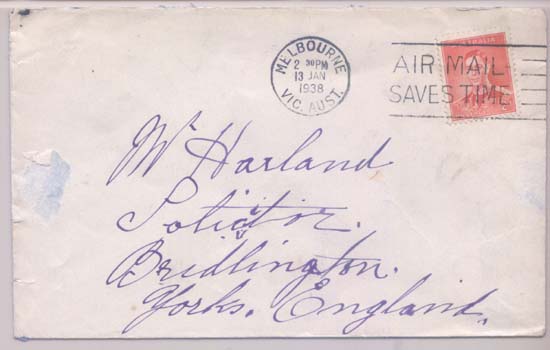 MELBOURNE
2 30PM
13 JAN
1938
VIC. AUST.
AIR MAIL
SAVES TIME
AUSTRALIA
Mr Harland
Solicitor.
Bridlington.
Yorks. England.